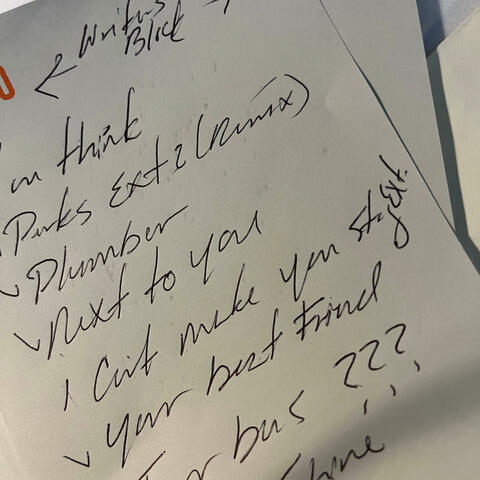 < Writers
Block
think
Ext 2 (Remix)
Plumber
Next to you
I Can't make you stay Ext.
Your best Friend
bus ???